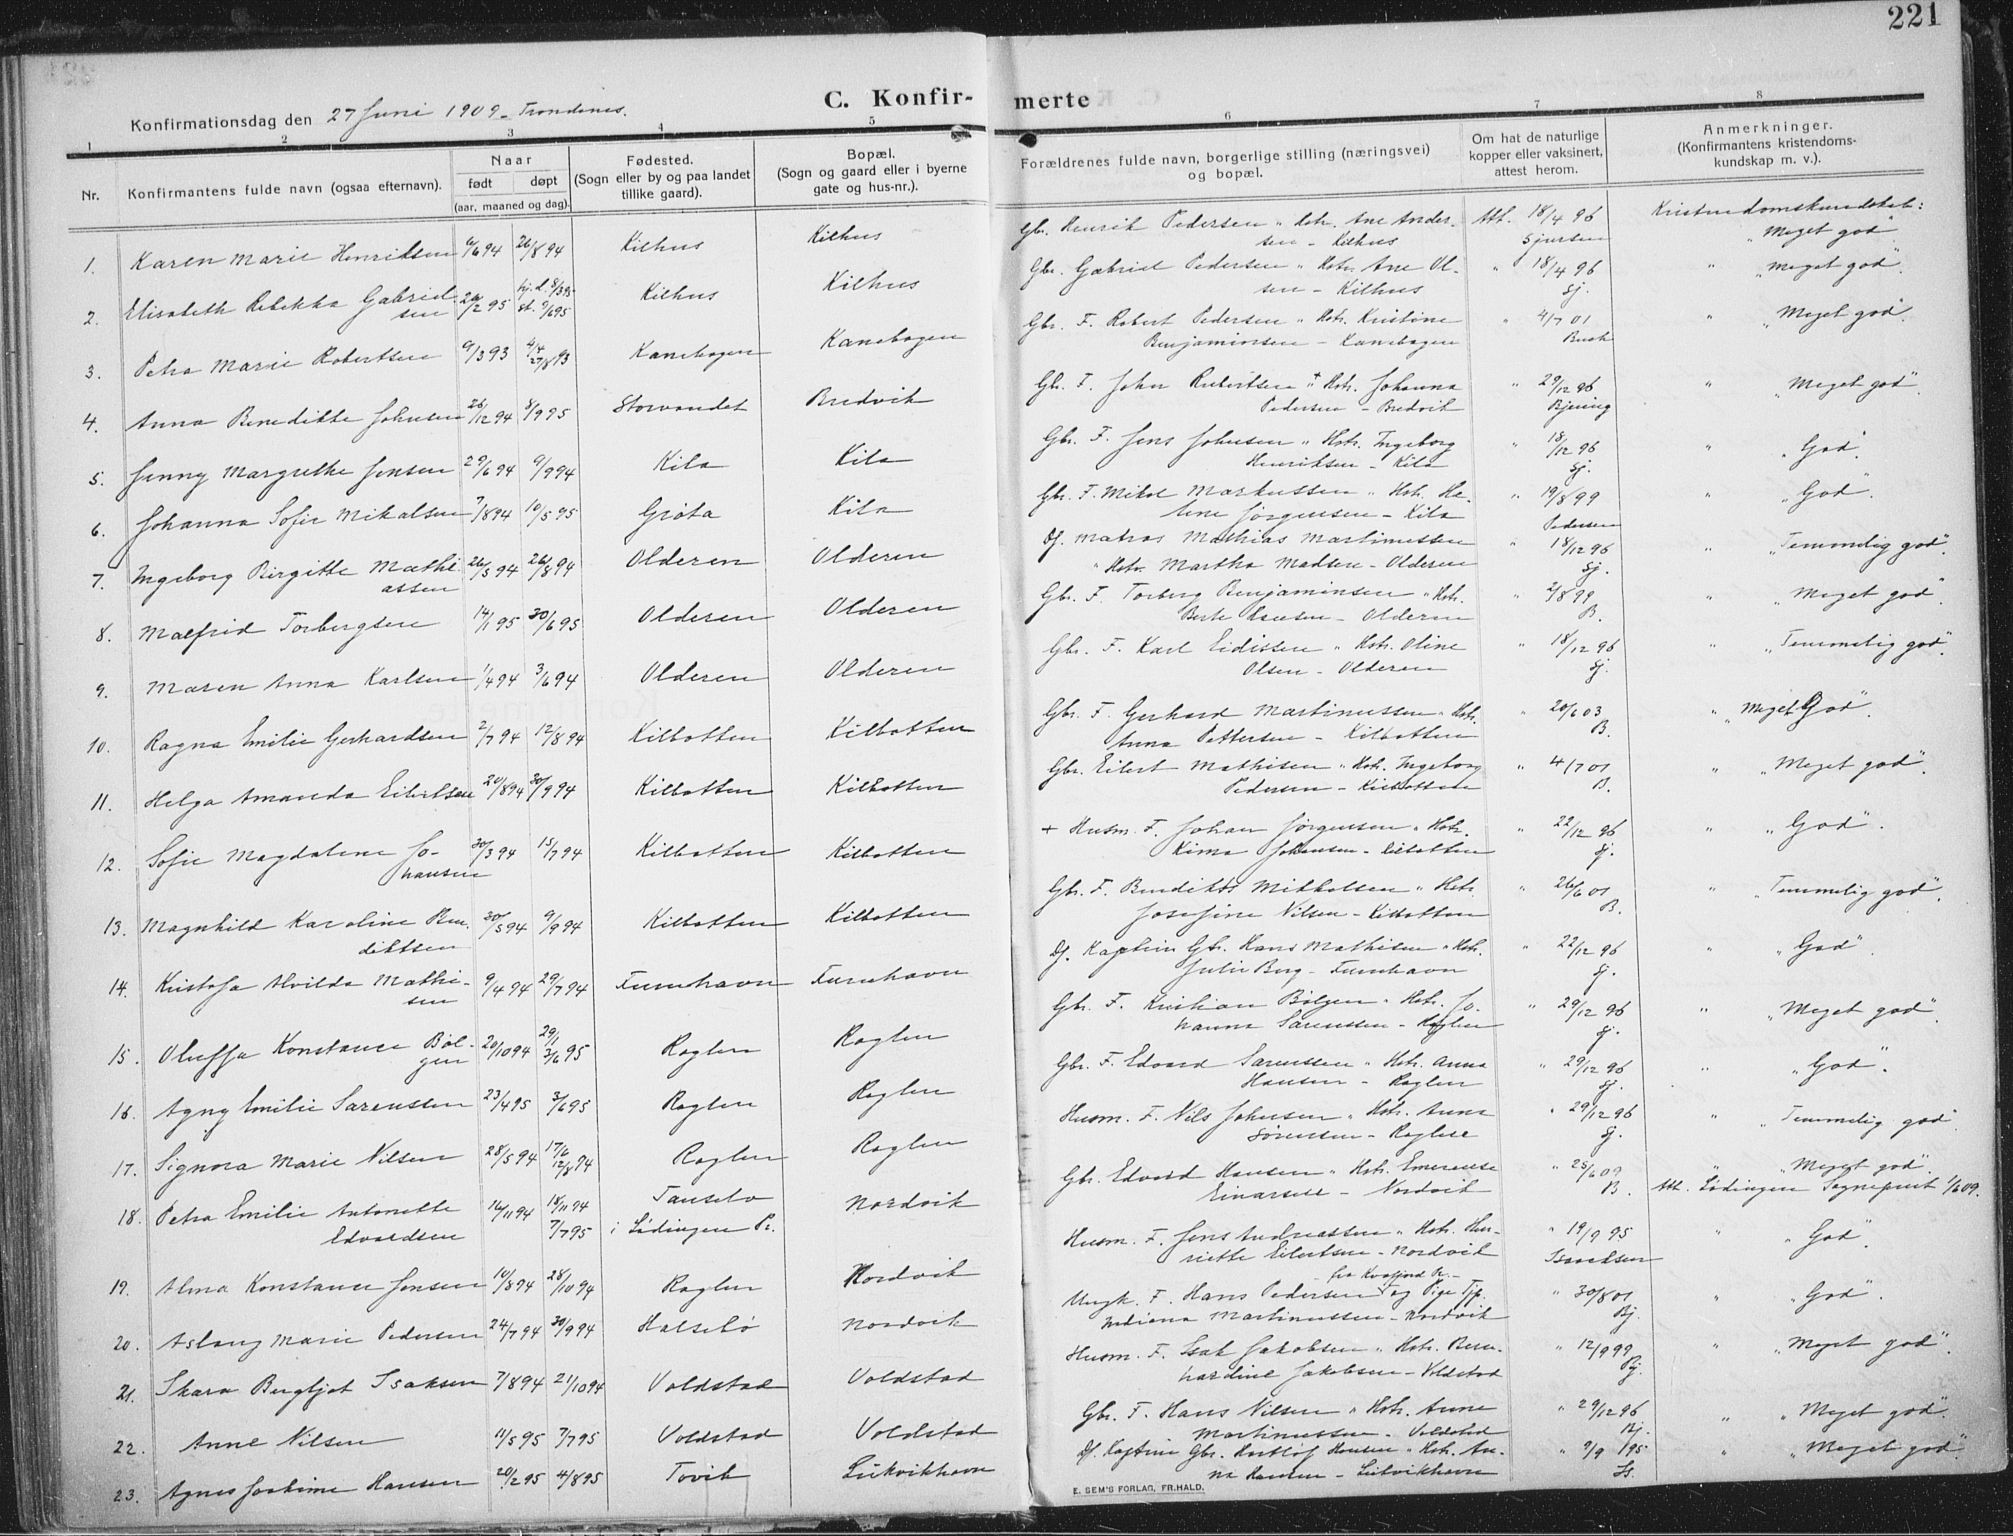 221
C. Konfir- merte
Konfirmationsdag den 27 Juni 1909 - Trondenes.
1 2 3 4 5 6 7 8
Nr.
Konfirmantens fulde navn (ogsaa efternavn).
Naar
født døpt
(aar, maaned og dag).
Fødested.
(Sogn eller by og paa landet
tillike gaard).
Bopæl.
(Sogn og gaard eller i byerne
gate og hus-nr.).
Forældrenes fulde navn, borgerlige stilling (næringsvei)
og bopæl.
Om hat de naturlige
kopper eller vaksinert,
attest herom.
Anmerkninger.
(Konfirmantens kristendoms-
kundskap m. v.).
1. Karen Marie Henriksen 6/6 94 26/8 94 Kilhus Kilhus Gbr. Henrik Pedersen " Hstr. Ane Ander- Att. 18/4 96 Kristendomskundskab:
sen - Kilhus Sjursen "Meget god"
2. Elisabeth Rebekka Gabriel- 20/2 95 hj. d. 8/3 95 Kilhus Kilhus Gbr. Gabriel Pedersen " Hstr. Ane Ol- " 18/4 96 " "Meget god".
sen st. 9/6 95 sen - Kilhus Sj.
3. Petra Marie Robertsen 9/3 93 4/4 27/8 93 Kanebogen Kanebogen Gbr. F. Robert Pedersen " Hstr. Kristine " 4/7 01 " "Meget god".
Benjaminsen - Kanebogen
4. Anna Benedikte Johnsen 26/12 94 8/9 95 Storvandet Bredvik Gbr. F. John Robertsen " Hstr. Johanna " 29/12 96 " "Meget god".
Pedersen - Bredvik
5. Jenny Margrethe Jensen 29/6 94 9/9 94 Kila Kila Gbr. F. Jens Johnsen " Hstr. Ingeborg " 18/12 96 " "God".
Henriksen - Kila Sj.
6. Johanna Sofie Mikalsen 7/8 94 10/5 95 Grøta Kila Gbr. F. Mikal Markussen " Hstr. He- " 19/8 99 " "God".
Jørgensen - Kila Pedersen
7. Ingeborg Birgitte Mathi- 26/5 94 26/8 94 Olderen Olderen Df. Matros Mathias Martinussen " 18/12 96 " "Temmelig god".
assen " Hstr. Martha Madsen - Olderen Sj.
8. Malfrid Torbergsen 14/1 95 30/6 95 Olderen Olderen Gbr. F. Torberg Benjaminsen " Hstr. " 2/8 99 " "Meget god".
Berte Hansen - Olderen B.
9. Maren Anna Karlsen 1/4 94 3/6 94 Olderen Olderen Gbr. F. Karl Eidissen " Hstr. Oline " 18/12 96 " "Temmelig god".
Olsen - Olderen Sj.
10. Ragna Emilie Gerhardsen 2/7 94 12/8 94 Kilbotten Kilbotten Gbr. F. Gerhard Martinussen " Hstr. " 20/6 03 " "Meget God".
Anna Pettersen - Kilbotten B.
11. Helga Amanda Eilertsen 20/8 94 30/9 94 Kilbotten Kilbotten Gbr. Eilert Mathisen " Hstr. Ingeborg " 4/7 01 " "Meget god".
Pedersen - Kilbotten B.
12. Sofie Magdalene Jo- 30/3 94 15/7 94 Kilbotten Kilbotten + Husm. F. Johan Jørgensen " Hstr. " 22/12 96 " "God".
hansen Johansen - Kilbotten Sj.
13. Magnhild Karoline Ben- 30/5 94 9/9 94 Kilbotten Kilbotten Gbr. F. Bendikt Mikkelsen " Hstr. " 26/6 01 " "Temmelig god".
diktsen Josefine Nilsen - Kilbotten B.
14. Kristofa Alvilda Mathi- 9/4 94 29/7 94 Furuhavn Furuhavn Df. Kaptein Gbr. Hans Mathisen " Hstr. " 22/12 96 " "God".
sen Julie Berg - Furuhavn Sj.
15. Oluffa Konstance Bøl- 20/10 94 29/1 3/6 95 Røglen Røglen Gbr. F. Kristian Bølgen " Hstr. Jo- " 29/12 96 " "Meget god".
gen hanna Sørensen - Røglen Sj.
16. Agny Emilie Sørensen 23/4 95 3/6 95 Røglen Røglen Gbr. F. Edvard Sørensen " Hstr. Anna " 29/12 96 " "God".
Hansen - Røglen Sj.
17. Signora Marie Nilsen 28/5 94 17/6 12/8 94 Røglen Røglen Husm. F. Nils Johnsen " Hstr. Anna " 29/12 96 " "Temmelig god".
Sørensen - Røglen Sj.
18. Petra Emilie Antonette 16/11 94 18/11 94 Nordvik Gbr. Edvard Hansen " Hstr. Emerense " 25/6 09 " "Meget god".
Edvardsen 7/7 95 i Lødingen Pr. Einarsen - Nordvik B. Att. Lødingen Sogneprest 1/6 09.
19. Alma Konstance Jensen 10/8 94 28/10 94 Røglen Nordvik Husm. F. Jens Andreassen " Hstr. Hen- " 19/9 95 " "God".
riette Eilertsen - Nordvik Isaachsen
20. Aslaug Marie Pedersen 24/7 94 30/9 94 Halsebø Nordvik Ungk. F. Hans Pedersen fra Kvæfjord Pr. og Pige Tjp. " 30/8 01 " "God".
Martinussen - Nordvik Bj.
21. Skara Bergljot Isaksen 7/8 94 21/10 94 Voldstad Voldstad Husm. F. Isak Jakobsen " Hstr. Bern- " 12/9 99 " "Meget god".
hardine Jakobsen - Voldstad Bj.
22. Anne Nilsen 11/5 95 7/7 95 Voldstad Voldstad Gbr. F. Hans Nilsen " Hstr. Anne " 29/12 96 " "Meget god".
Martinussen - Voldstad Bj.
23. Agnes Joakime Hansen 20/2 95 4/8 95 Tovik Lukvikhavn Df. Kaptein Gbr. Hartlof Hansen " Hstr. An- " 9/9 95 " "Meget god".
na Hansen - Lukvikhavn Is.
E. SEM'S FORLAG, FR.HALD.